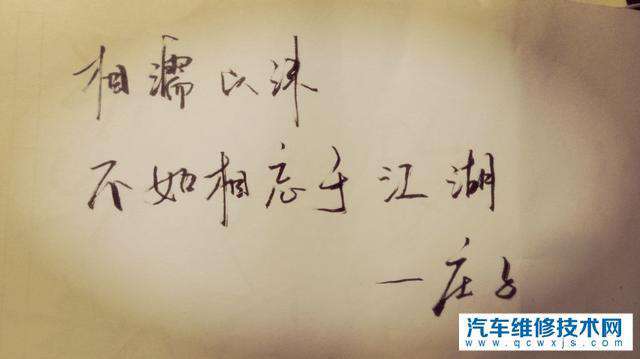 相濡以沫
不如相忘于江湖
—庄子
汽车维修技术网
www.qcwxjs.com